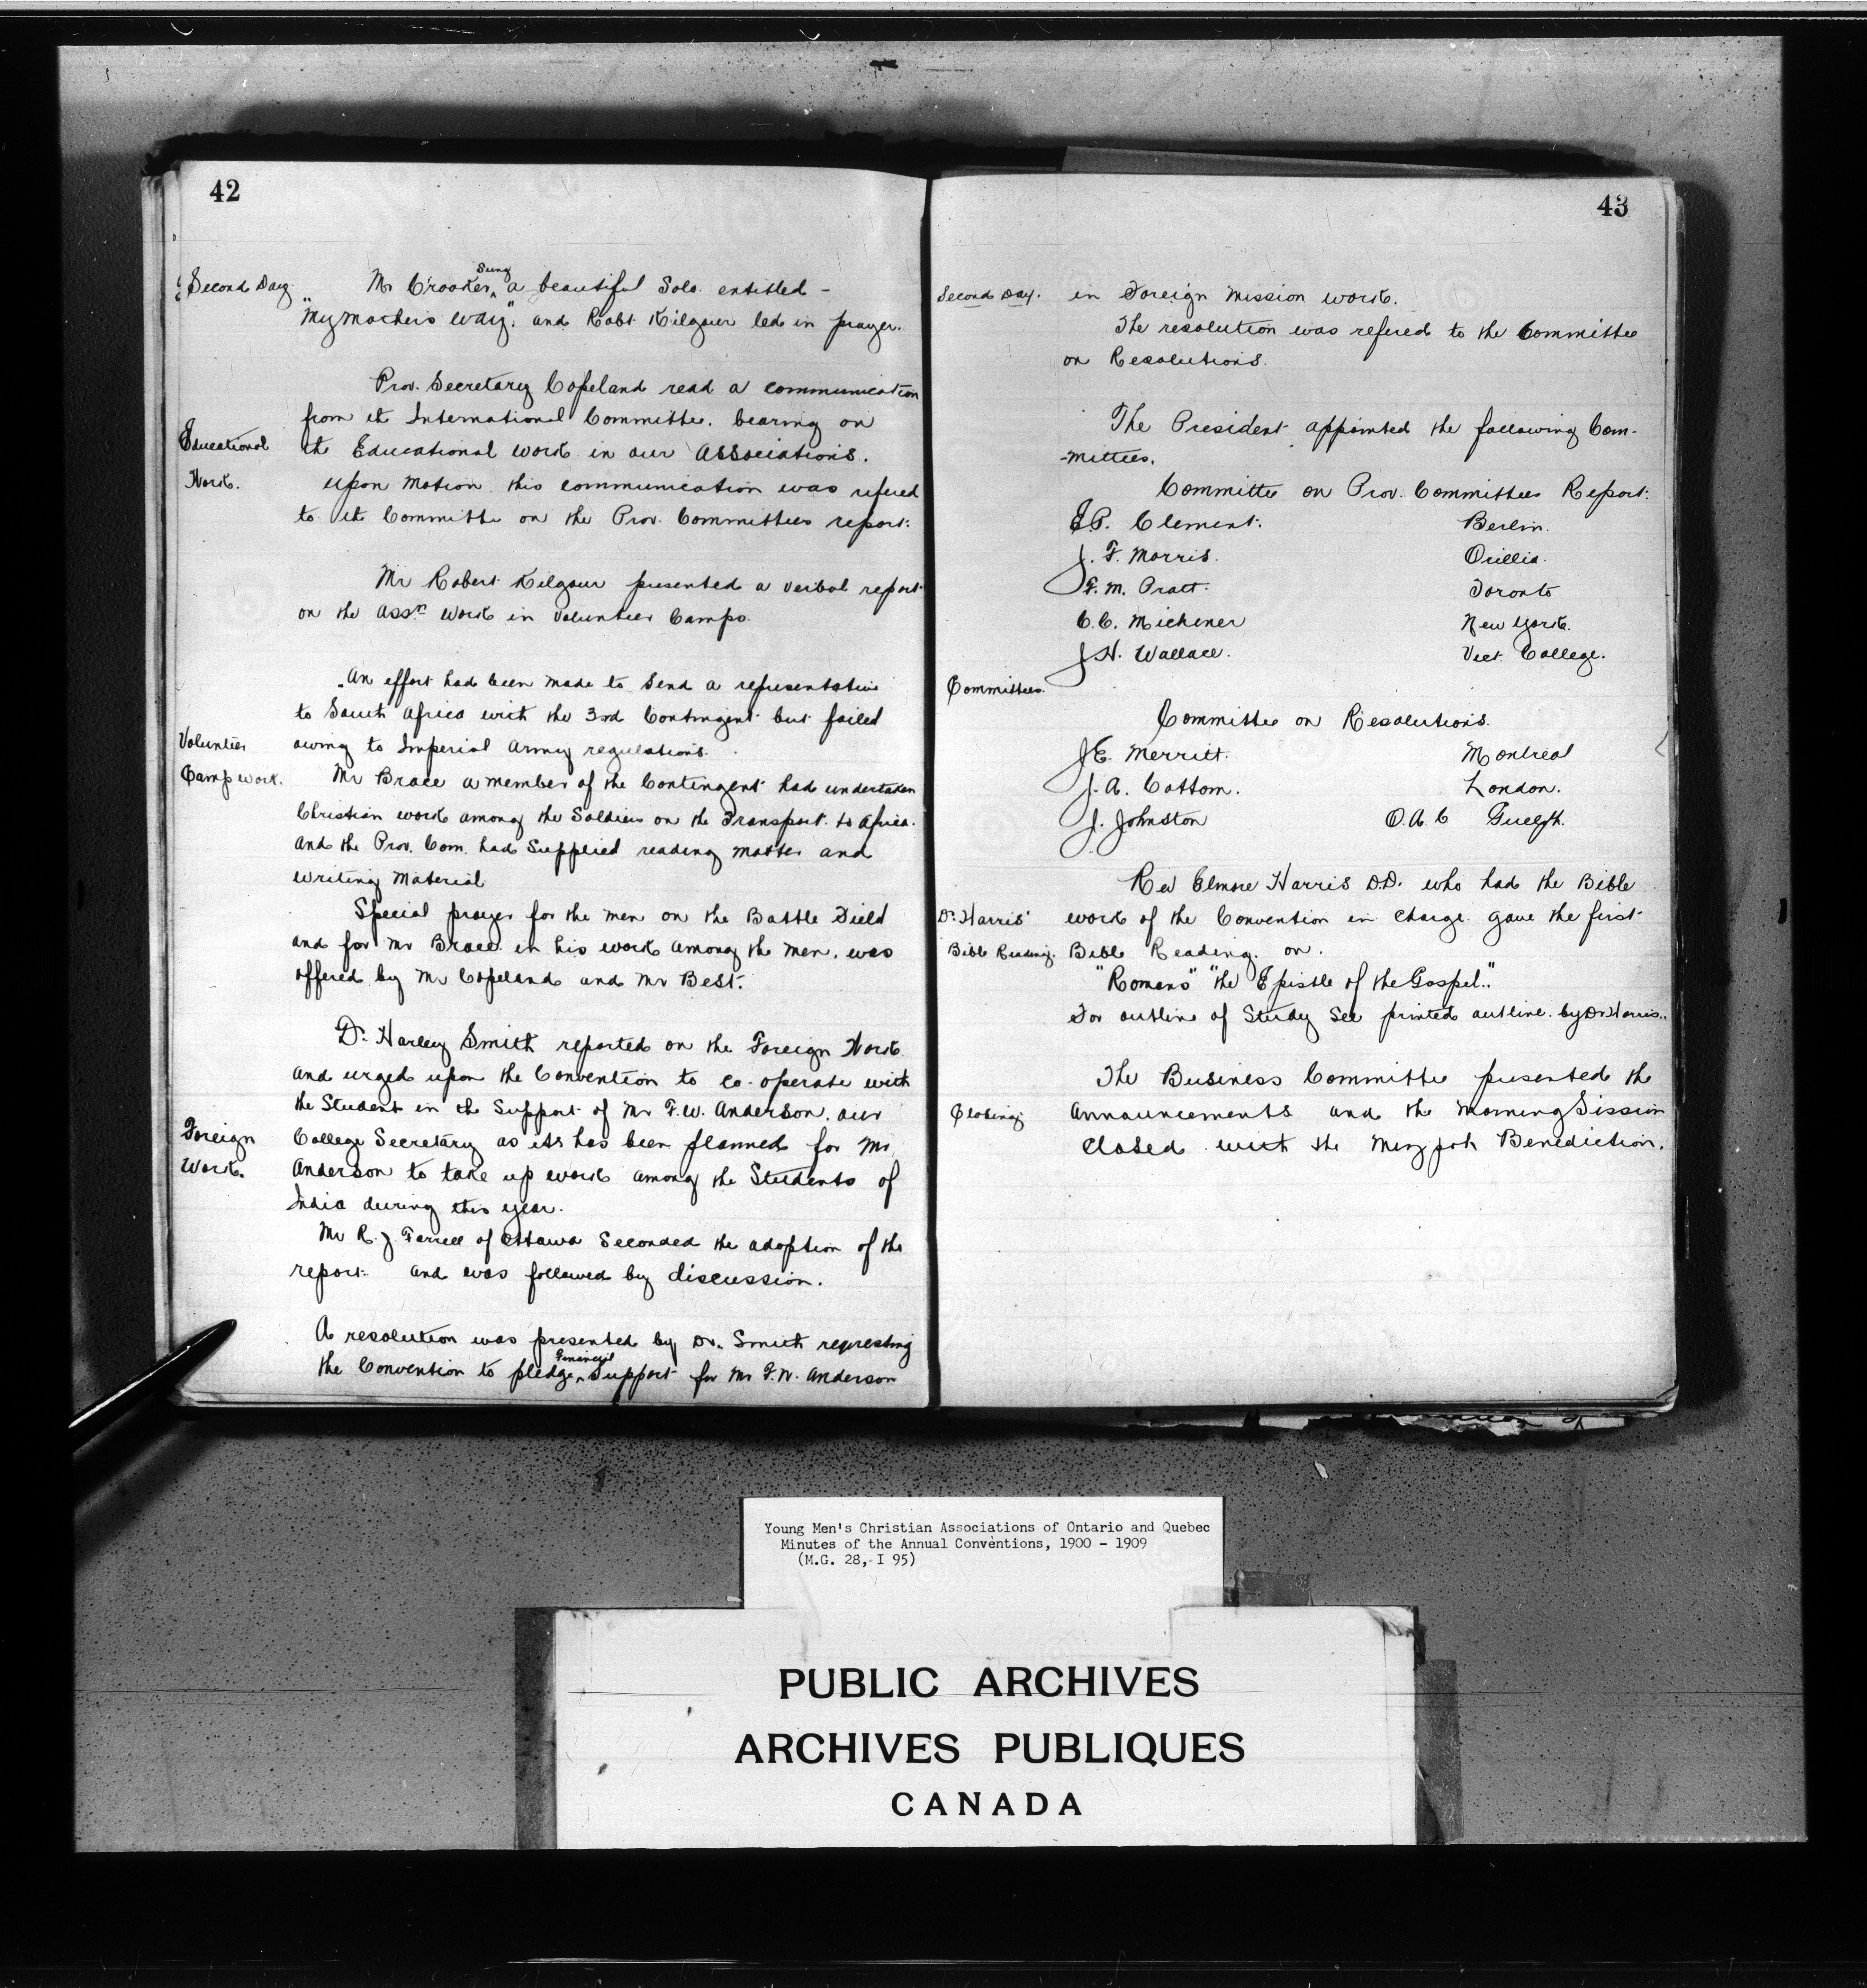 42
Second Day.
Mr Crooker, Sung a beautiful Solo. entitled -
"My Mothers Way", and Robt Kilgour led in prayer.
Prov. Secretary Copeland read a communication
from the International Committee. bearing on
Educational
the Educational work in our Associations.
Work.
upon motion this communication was refered
to the Committee on the Prov. Committees report.
Mr Robert Kilgour presented a verbal report
on the Assn work in Volunteer Camps.
An effort had been made to send a representative
to South Africa with the 3rd Contingent but failed
Volunteer
owing to Imperial Army regulations.
Camp work.
Mr Brace a member of the Contingent had undertaken
Christian work among the Soldiers on the Transport to Africa.
and the Prov. Com. had Supplied reading matter and
writing Material
Special prayer for the men on the Battle Field
and for Mr Brace in his work among the men, was
offered by Mr Copeland and Mr Best.
Dr. Harley Smith reported on the Foreign Work
and urged upon the Convention to co-operate with
the Student in the Support of Mr F.W. Anderson, our
Foreign
College Secretary as its has been planned for Mr
Work.
Anderson to take up work among the Students of
India during this year.
Mr R. J. Farrell of Ottawa Seconded the adoption of the
report and was followed by discussion.
A resolution was presented by Dr. Smith requesting
the Convention to pledge Financial Support for Mr F.W. Anderson
43
Second Day.
in Foreign Mission work.
The resolution was refered to the Committee
on Resolutions.
The President appointed the following Com-
-mittees.
Committee on Prov. Committees Report:
E.P. Clement. Berlin.
J. F. Morris. Orillia.
F. M. Pratt. Toronto
C.C. Michener New York.
J.H. Wallace. Vict. College.
Committees.
Committee on Resolutions.
J.E. Merritt. Montreal
J. A. Cottom. London.
J. Johnston O.A.C Guelph.
Rev Elmore Harris D.D. who had the Bible
Dr. Harris'
work of the Convention in charge gave the first
Bible Reading.
Bible Reading. on.
"Romans" "the Epistle of the Gospel."
For outline of Study See printed outline. by Dr Harris.
The Business Committee presented the
Closing
announcements and the Morning Session
Closed with the Mizpah Benediction.
Young Men's Christian Associations of Ontario and Quebec
Minutes of the Annual Conventions, 1900 - 1909
(M.G. 28, I 95)
PUBLIC ARCHIVES
ARCHIVES PUBLIQUES
CANADA